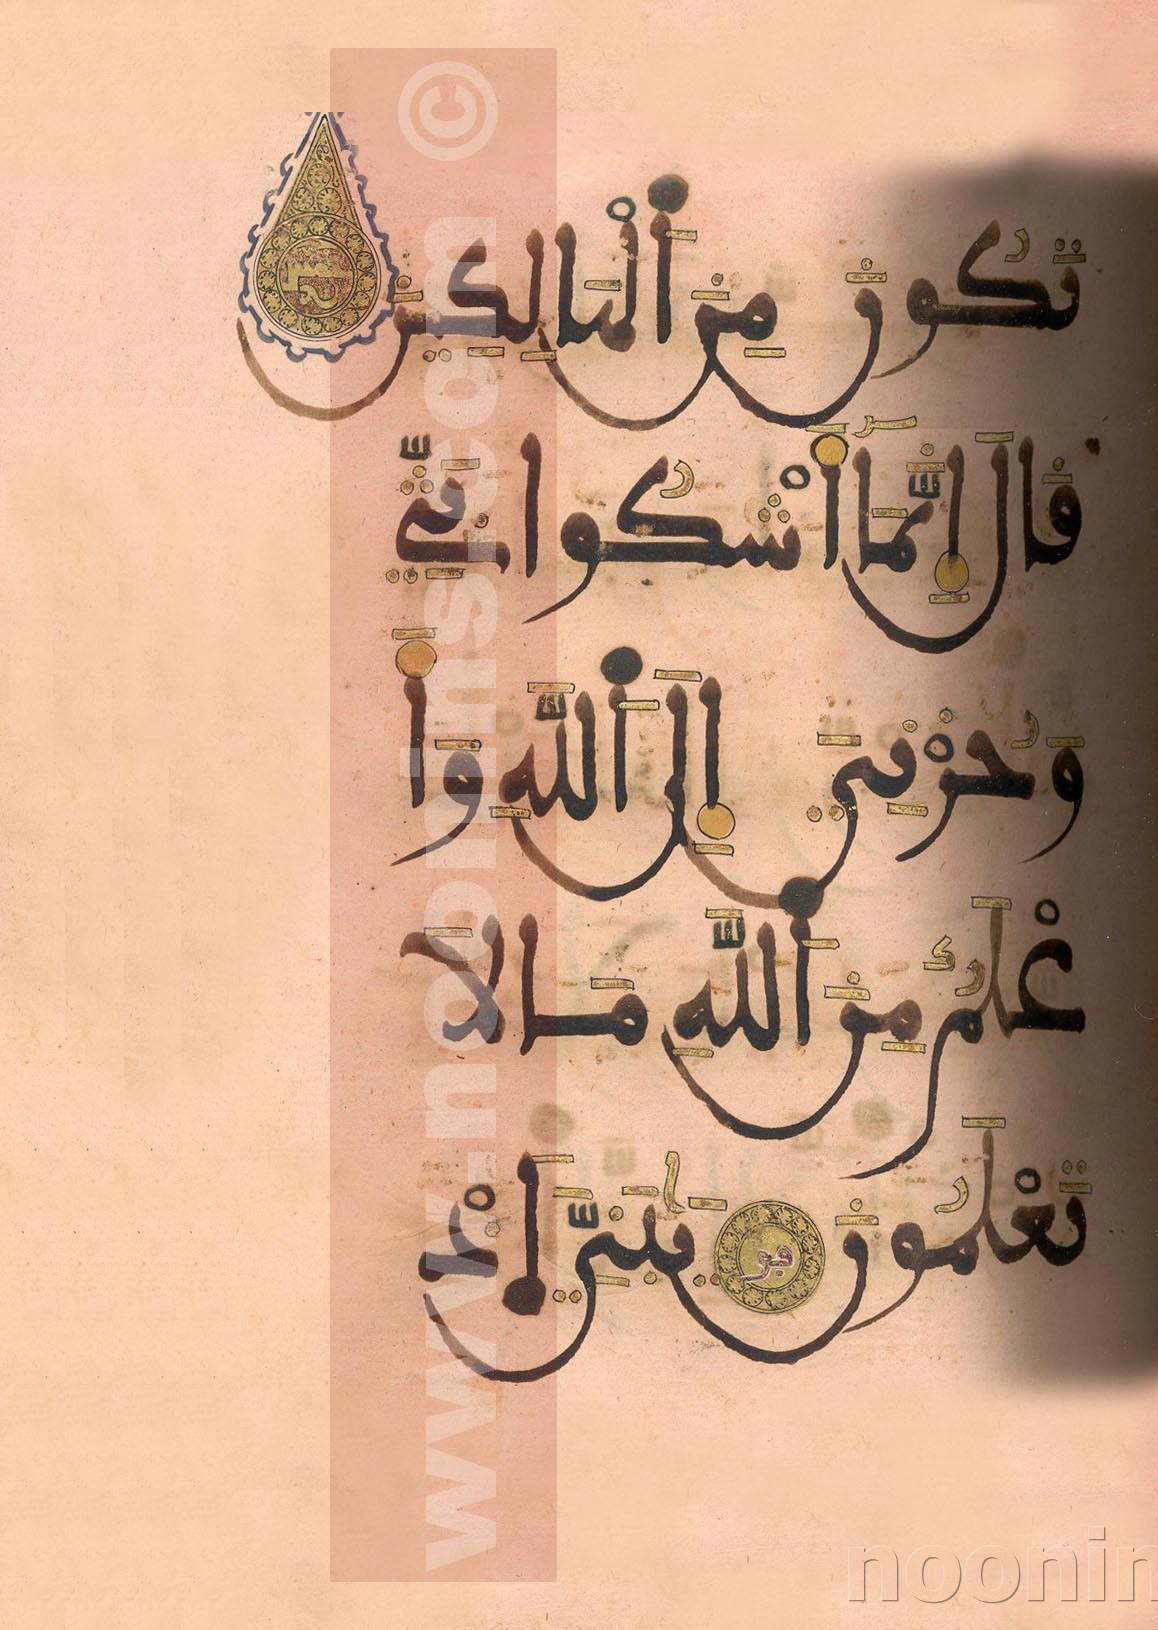 تَكُونَ مِنَ ٱلْهَٰلِكِينَ
قَالَ إِنَّمَا أَشْكُوا بَثِّي
وَحُزْنِي إِلَى ٱللَّهِ وَأَ
عْلَمُ مِنَ ٱللَّهِ مَا لَا
تَعْلَمُونَ يَٰبَنِيَّ ٱذْ
www.noonins.com ©
noonin